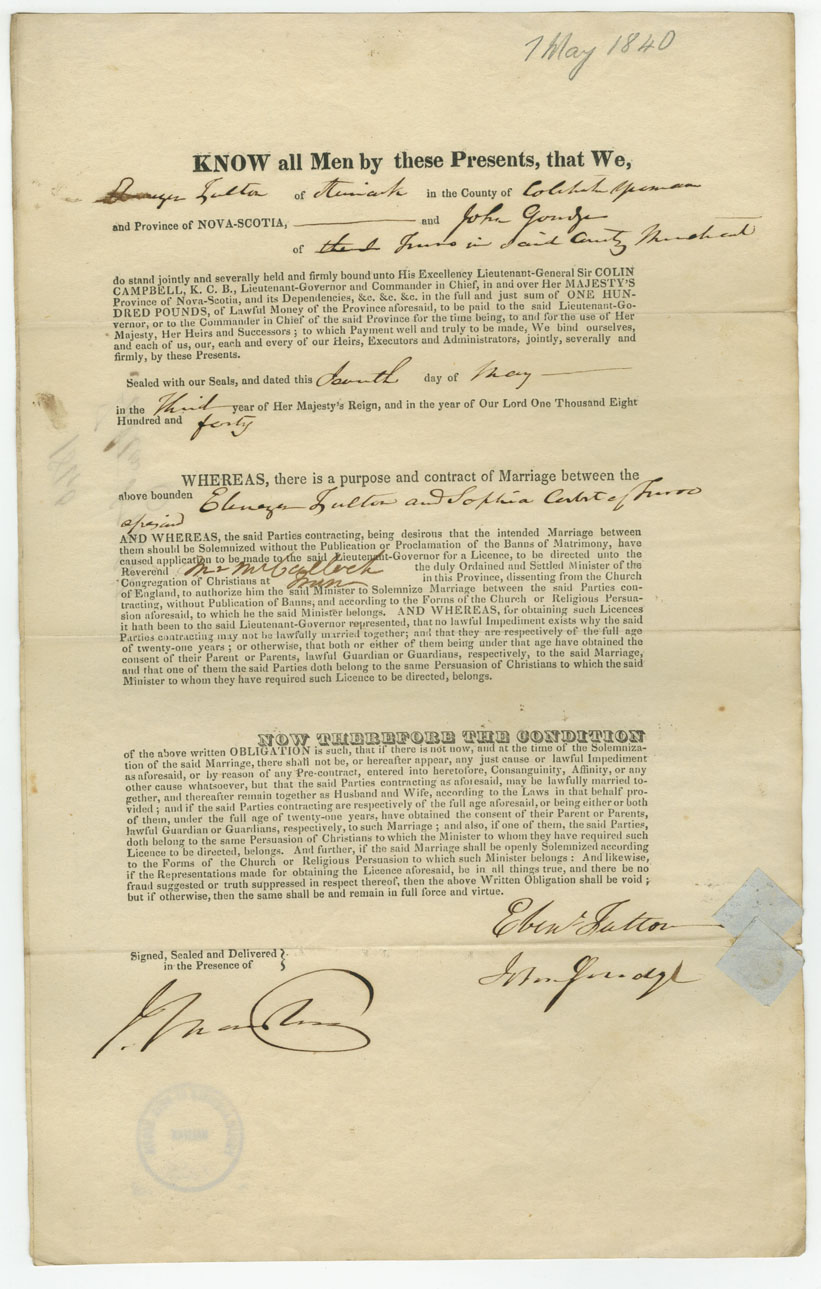 7 May 1840
KNOW all Men by these Presents, that We,
Fulton of in the County of Yeoman
and Province of NOVA-SCOTIA, and John Goudge
of Truro in said County Merchant
do stand jointly and severally held and firmly bound unto His Excellency Lieutenant-General Sir COLIN
CAMPBELL, K. C. B., Lieutenant-Governor and Commander in Chief, in and over Her MAJESTY'S
Province of Nova-Scotia, and its Dependencies, &c. &c. &c. in the full and just sum of ONE HUN-
DRED POUNDS, of Lawful Money of the Province aforesaid, to be paid to the said Lieutenant-Go-
vernor, or to the Commander in Chief of the said Province for the time being, to and for the use of Her
Majesty, Her Heirs and Successors ; to which Payment well and truly to be made, We bind ourselves,
and each of us, our, each and every of our Heirs, Executors and Administrators, jointly, severally and
firmly, by these Presents.
Sealed with our Seals, and dated this day of May
in the Third year of Her Majesty's Reign, and in the year of Our Lord One Thousand Eight
Hundred and forty
WHEREAS, there is a purpose and contract of Marriage between the
above bounden Ebenezer Fulton and Sophia of Truro
AND WHEREAS, the said Parties contracting, being desirous that the intended Marriage between
them should be Solemnized without the Publication or Proclamation of the Banns of Matrimony, have
caused application to be made to the said Lieutenant-Governor for a Licence, to be directed unto the
Reverend Mr McCulloch the duly Ordained and Settled Minister of the
Congregation of Christians at Truro in this Province, dissenting from the Church
of England, to authorize him the said Minister to Solemnize Marriage between the said Parties con-
tracting, without Publication of Banns, and according to the Forms of the Church or Religious Persua-
sion aforesaid, to which he the said Minister belongs. AND WHEREAS, for obtaining such Licences
it hath been to the said Lieutenant-Governor represented, that no lawful Impediment exists why the said
Parties contracting may not be lawfully married together; and that they are respectively of the full age
of twenty-one years ; or otherwise, that both or either of them being under that age have obtained the
consent of their Parent or Parents, lawful Guardian or Guardians, respectively, to the said Marriage,
and that one of them the said Parties doth belong to the same Persuasion of Christians to which the said
Minister to whom they have required such Licence to be directed, belongs.
NOW THEREFORE THE CONDITION
of the above written OBLIGATION is such, that if there is not now, and at the time of the Solemniza-
tion of the said Marriage, there shall not be, or hereafter appear, any just cause or lawful Impediment
as aforesaid, or by reason of any Pre-contract, entered into heretofore, Consanguinity, Affinity, or any
other cause whatsoever, but that the said Parties contracting as aforesaid, may be lawfully married to-
gether, and thereafter remain together as Husband and Wife, according to the Laws in that behalf pro-
vided ; and if the said Parties contracting are respectively of the full age aforesaid, or being either or both
of them, under the full age of twenty-one years, have obtained the consent of their Parent or Parents,
lawful Guardian or Guardians, respectively, to such Marriage ; and also, if one of them, the said Parties,
doth belong to the same Persuasion of Christians to which the Minister to whom they have required such
Licence to be directed, belongs. And further, if the said Marriage shall be openly Solemnized according
to the Forms of the Church or Religious Persuasion to which such Minister belongs : And likewise,
if the Representations made for obtaining the Licence aforesaid, be in all things true, and there be no
fraud suggested or truth suppressed in respect thereof, then the above Written Obligation shall be void ;
but if otherwise, then the same shall be and remain in full force and virtue.
Ebenr Fulton
Signed, Sealed and Delivered
in the Presence of
John Goudge